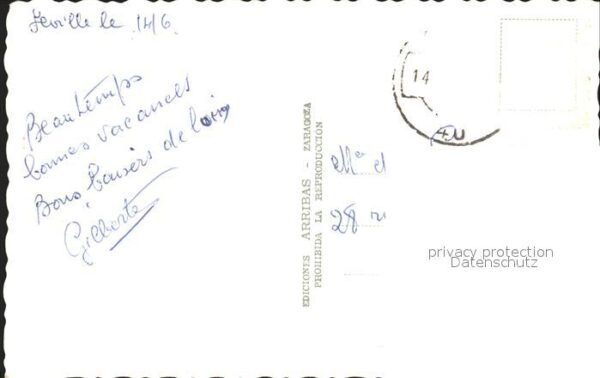 Séville le 14/6
Beau temps
bonnes vacances
Bons baisers de loin
Gilberte
EDICIONES ARRIBAS - ZARAGOZA
PROHIBIDA LA REPRODUCCION
14
28
privacy protection
Datenschutz